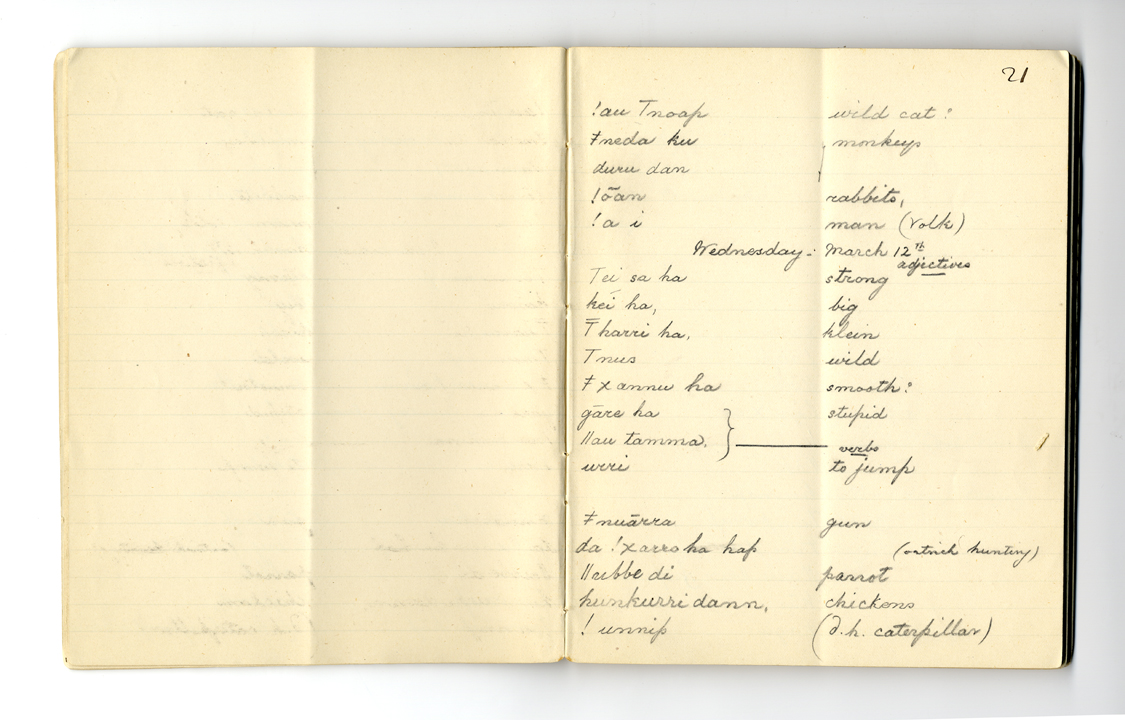 21
!au Tnoap wild cat?
ǂneda ku monkeys
duru dan
!õan rabbits,
!a i man (Volk)
Wednesday: March 12th
adjectives
Tei sa ha strong
kei ha, big
T̄harri ha, klein
Tnus wild
ǂxannu ha smooth?
gāre ha stupid
ǁau tamma.
verbs
urri to jump
ǂnuārra gun
da !xarro ha hap (ostrich hunting)
ǁubbe di parrot
hunkurridann, chickens
! unnip (d.h. caterpillar)